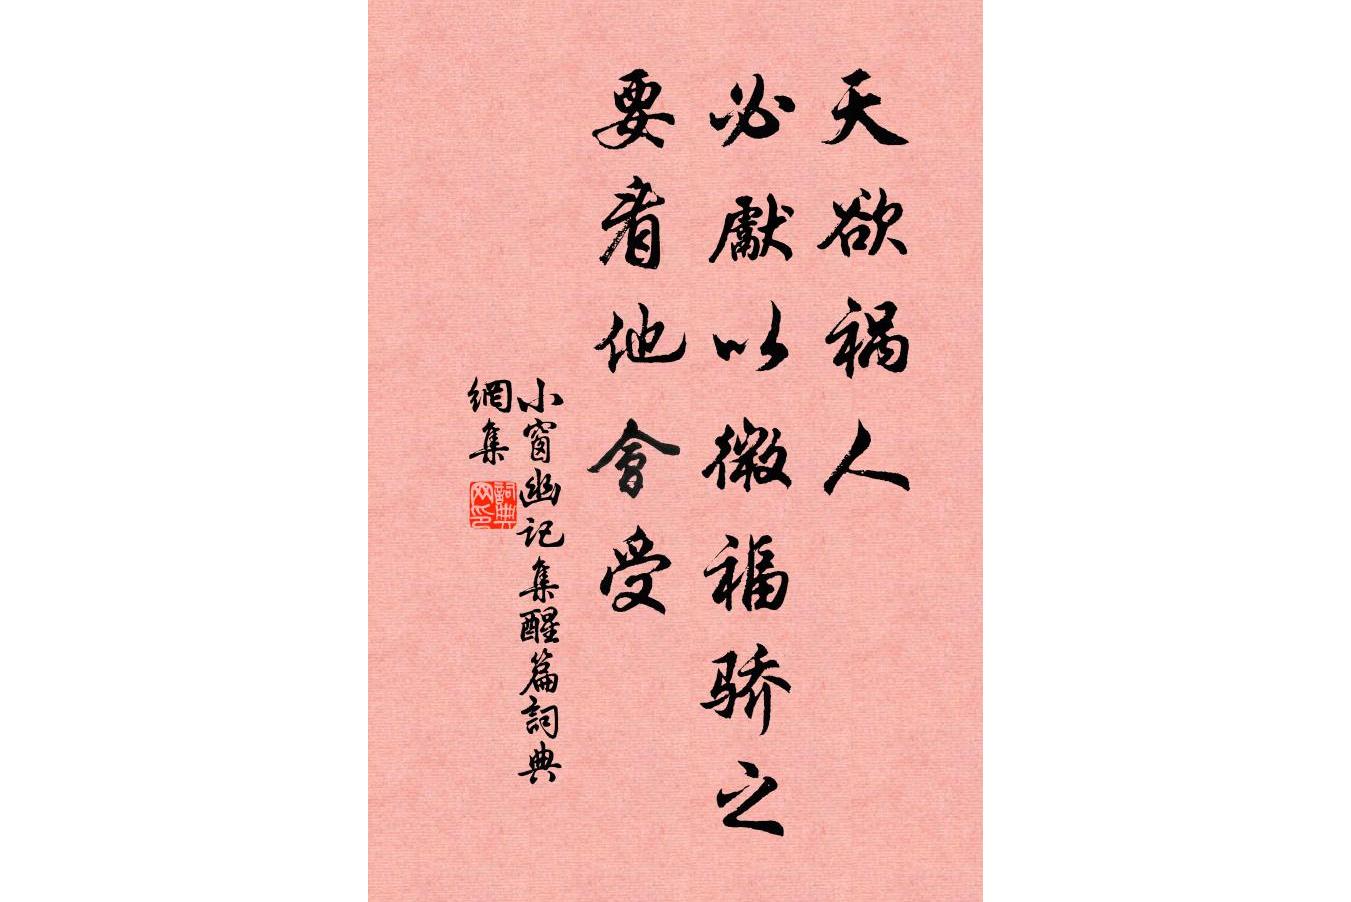 天欲祸人
必獻以微福骄之
要看他會受
小窗幽记集醒篇詞典
網集
詞典
网印